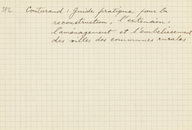 Couturaud - Guide pratique pour la
reconstruction, l'extension,
l'aménagement et l'embellissement
des villes des communes rurales